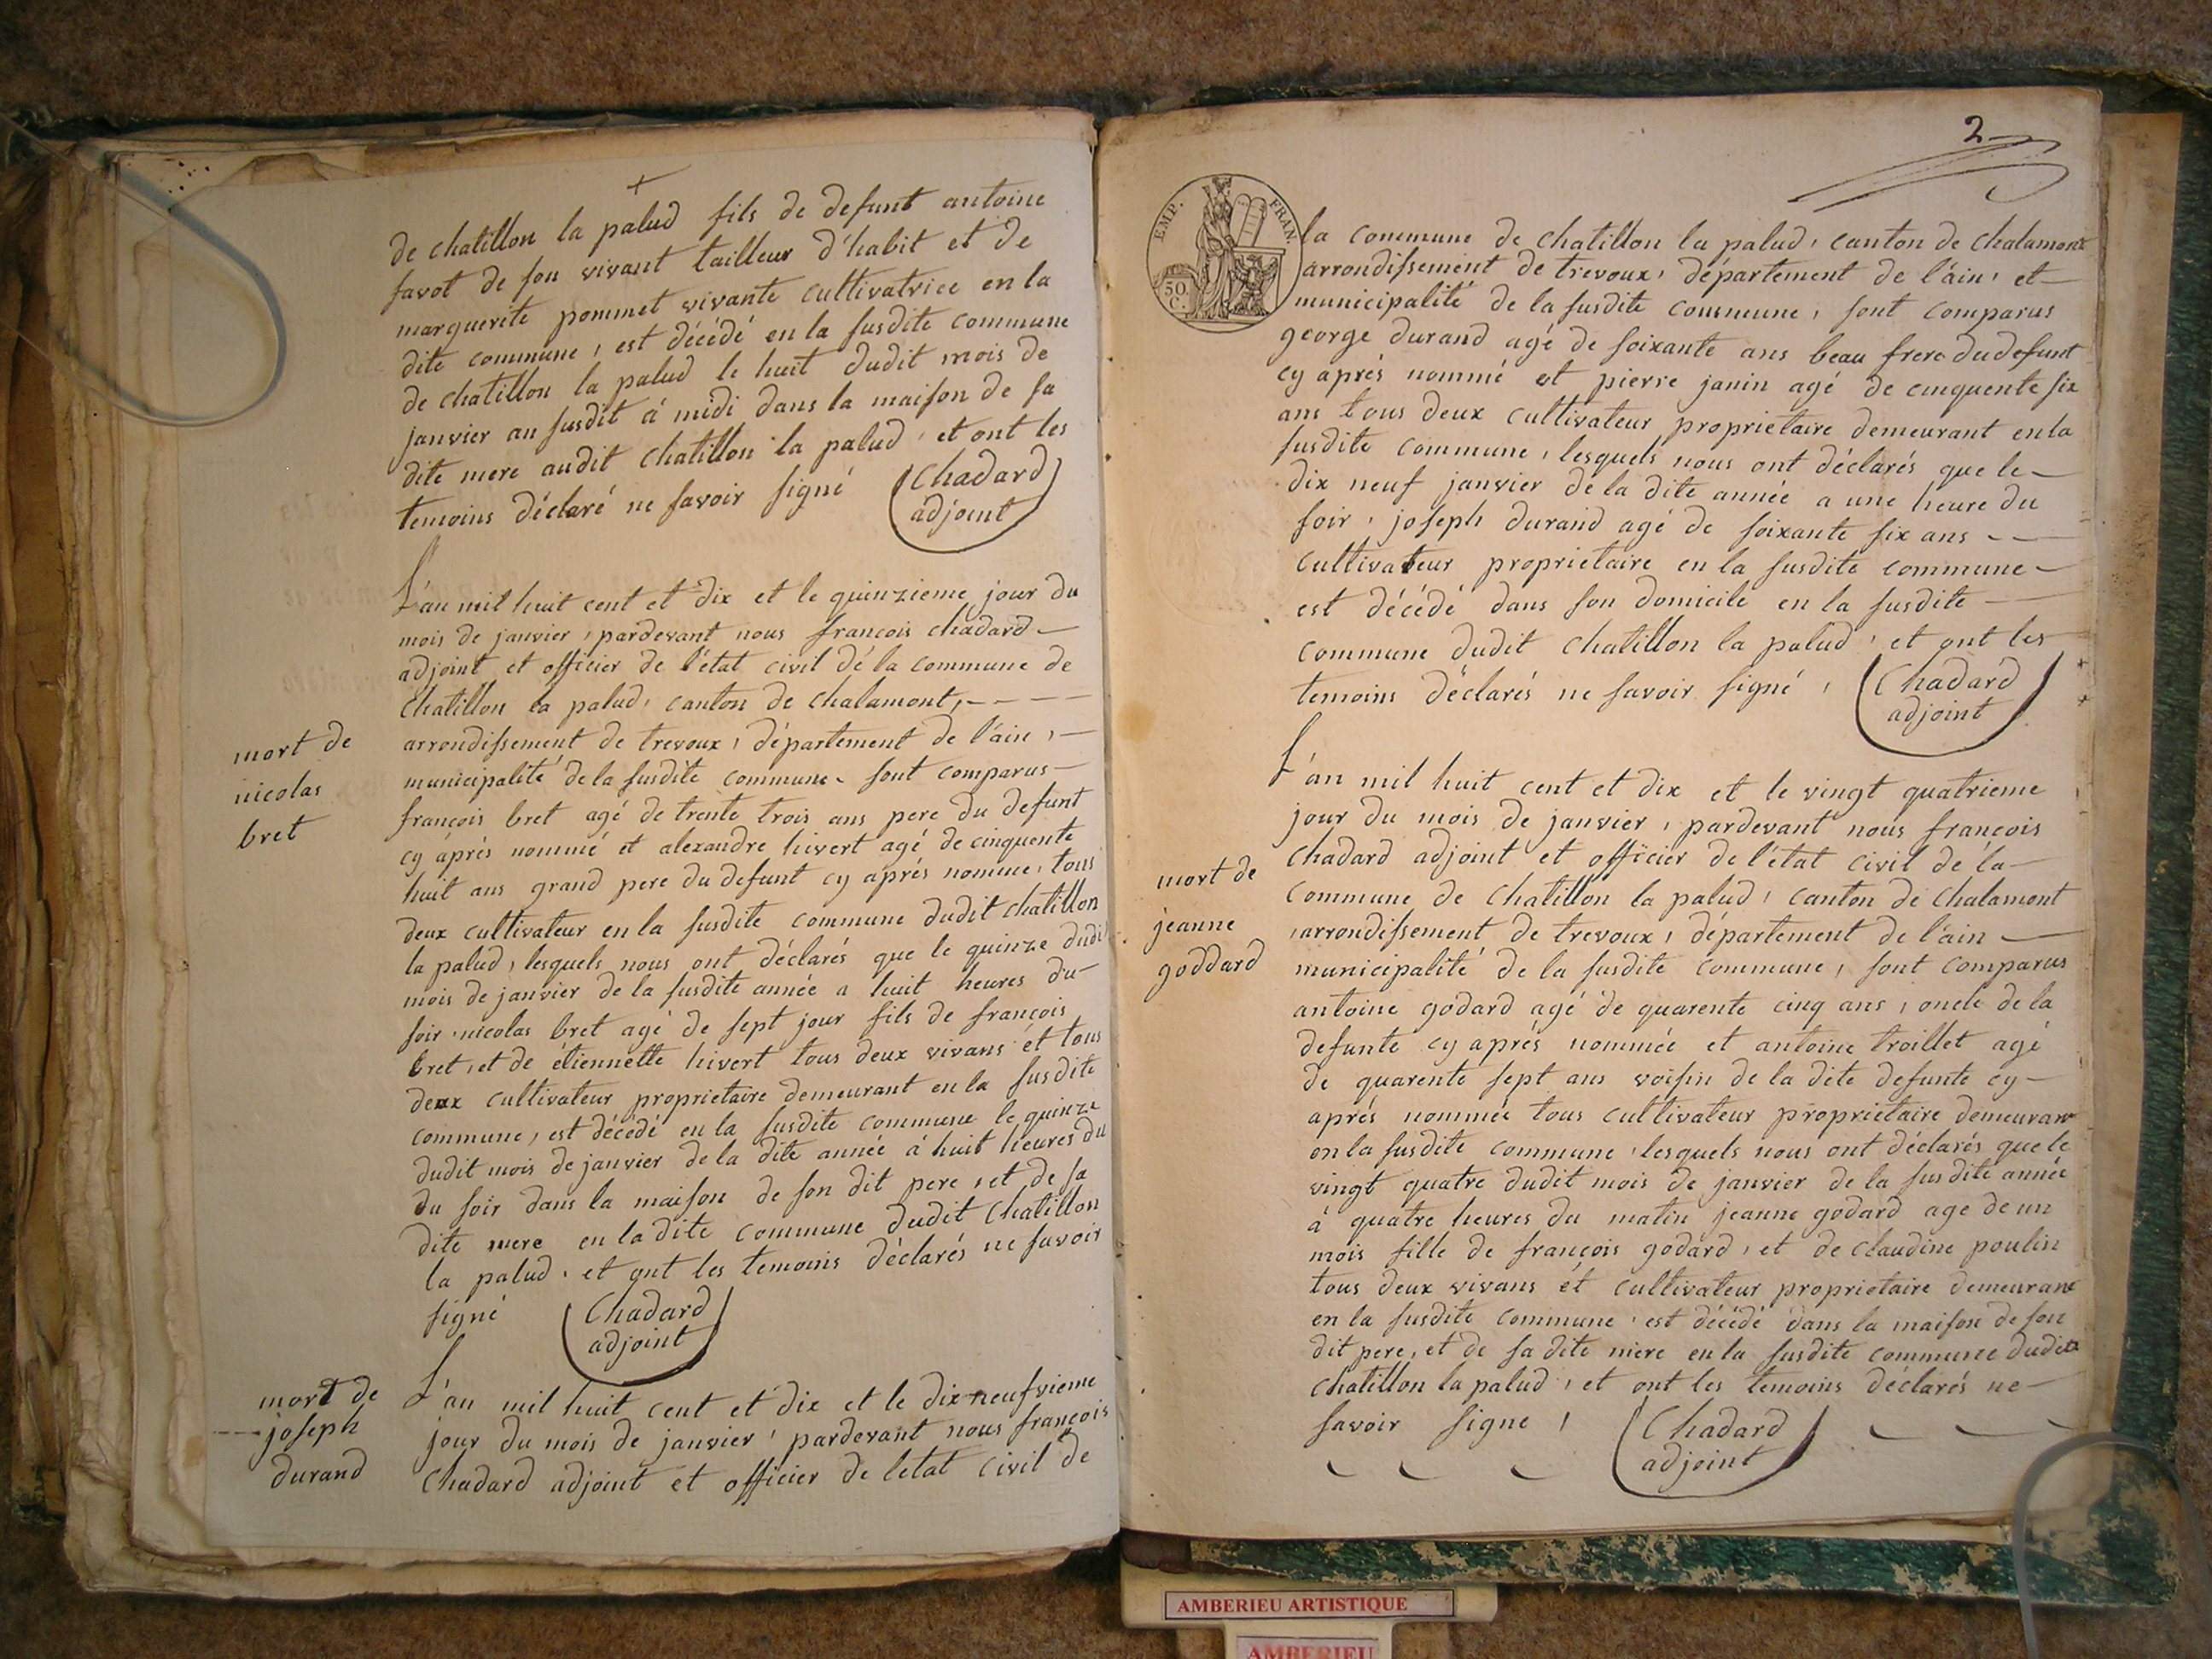 de chatillon la palud fils de defunt antoine
favot de son vivant tailleur d'habit et de
marguerite pommet vivante cultivatrice en la
dite commune, est décédé en la susdite commune
de chatillon la palud le huit dudit mois de
janvier an susdit á midi dans la maison de sa
dite mere audit chatillon la palud, et ont les
temoins déclaré ne savoir signé
Chadard
adjoint
L'an mil huit cent et dix et le quinzieme jour du
mois de janvier, pardevant nous francois chadard
adjoint et officier de l'état civil dé la commune de
chatillon la palud, canton de chalamont,
arrondissement de trevoux, département de l'ain,
municipalité de la susdite commune, sont comparus
mort de
nicolas
bret
françois bret agé de trente trois ans pere du defunt
cy áprés nommé et alexandre hivert agé de cinquente
huit ans grand pere du defunt cy áprés nommé, tous
deux cultivateur en la susdite commune dudit chatillon
la palud, lesquels nous ont déclarés que le quinze dudit
mois de janvier de la susdite année a huit heures du
soir, nicolas bret agé de sept jour fils de françois
bret, et de étiennette hivert tous deux vivans et tous
deux cultivateur proprietaire demeurant en la susdite
commune, est décédé en la susdite commune le quinze
dudit mois de janvier de la dite année á huit heures du
du soir dans la maison de son dit pere, et de sa
dite mere en la dite commune dudit chatillon
la palud, et ont les temoins déclarés ne savoir
signé
Chadard
adjoint
mort de
joseph
durand
L'an mil huit cent et dix et le dix neufvieme
jour du mois de janvier, pardevant nous françois
Chadard adjoint et officier de letat civil de
2
EMP. FRAN.
50
C.
la commune de chatillon la palud, canton de chalamont
arrondissement de trevoux, département de l'ain, et
municipalité de la susdite commune, sont comparus
george durand agé de soixante ans beau frere du defunt
cy aprés nommé et pierre janin agé de cinquente six
ans tous deux cultivateur proprietaire demeurant en la
susdite commune, lesquels nous ont déclarés que le
dix neuf janvier de la dite année a une heure du
soir, joseph durand agé de soixante six ans
cultivateur proprietaire en la susdite commune
est décédé dans son domicile en la susdite
commune dudit chatillon la palud, et ont les
temoins déclarés ne savoir signé,
Chadard
adjoint
L'an mil huit cent et dix et le vingt quatrieme
jour du mois de janvier, pardevant nous françois
Chadard adjoint et officier de l'état civil de la
commune de chatillon la palud, canton de chalamont
arrondissement de trevoux, département de l'ain
mort de
jeanne
goddard
municipalité de la susdite commune, sont comparus
antoine godard agé de quarente cinq ans, oncle de la
defunte cy aprés nommée et antoine troillet agé
de quarente sept ans voisin de la dite defunte cy
aprés nommée tous cultivateur proprietaire demeurant
en la susdite commune, lesquels nous ont déclarés que le
vingt quatre dudit mois de janvier de la susdite année
á quatre heures du matin jeanne godard age de un
mois fille de françois godard, et de claudine poulin
tous deux vivans et cultivateur proprietaire demeurant
en la susdite commune, est décédé dans la maison de son
dit pere, et de sa dite mere en la susdite commune dudit
chatillon la palud, et ont les temoins déclarés ne
savoir signe,
Chadard
adjoint
AMBERIEU ARTISTIQUE
AMBERIEU